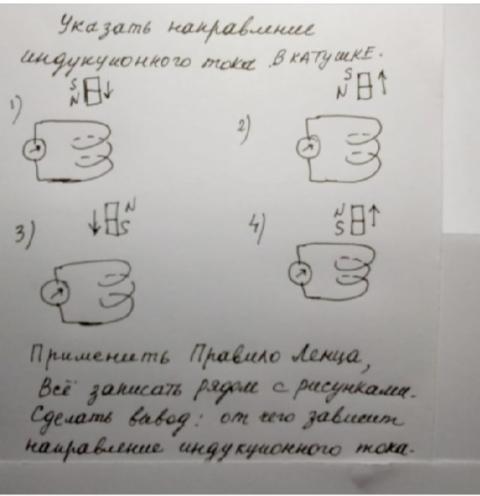 Указать направление
индукционного тока в катушке.
1) S N
2) S N
3) N S
4) N S
Применить Правило Ленца,
Всё записать рядом с рисунками.
Сделать вывод: от чего зависит
направление индукционного тока.